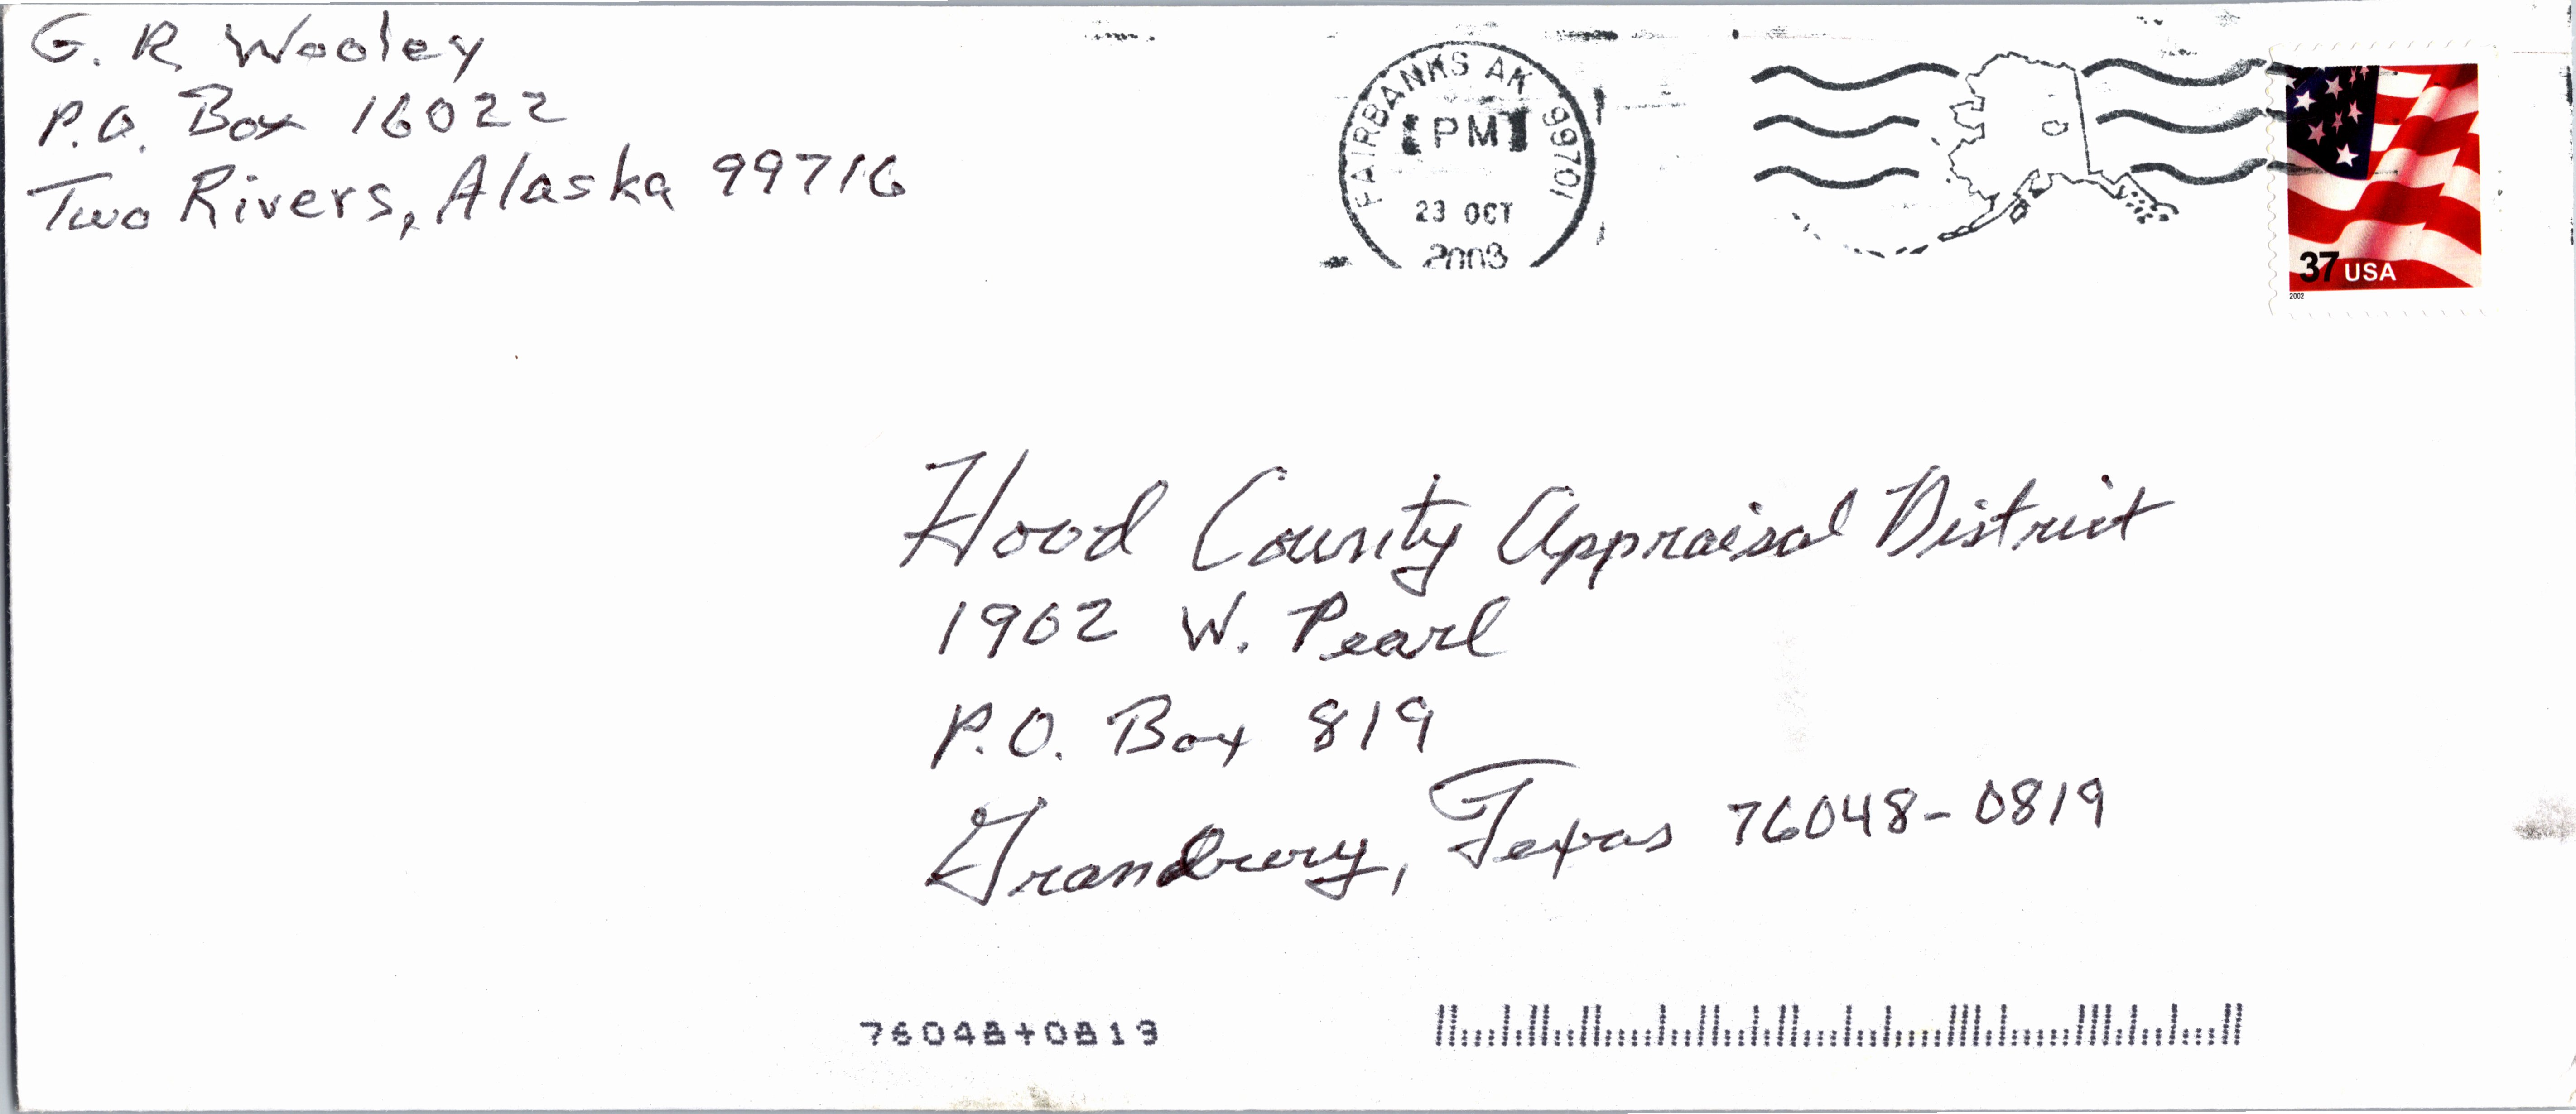 G. R Wooley
P.O. Box 16022
Two Rivers, Alaska 99716
FAIRBANKS AK 99701
PM
23 OCT
2003
37 USA
2002
Hood County Appraisal District
1902 W. Pearl
P.O. Box 819
Granbury, Texas 76048-0819
76048+0819